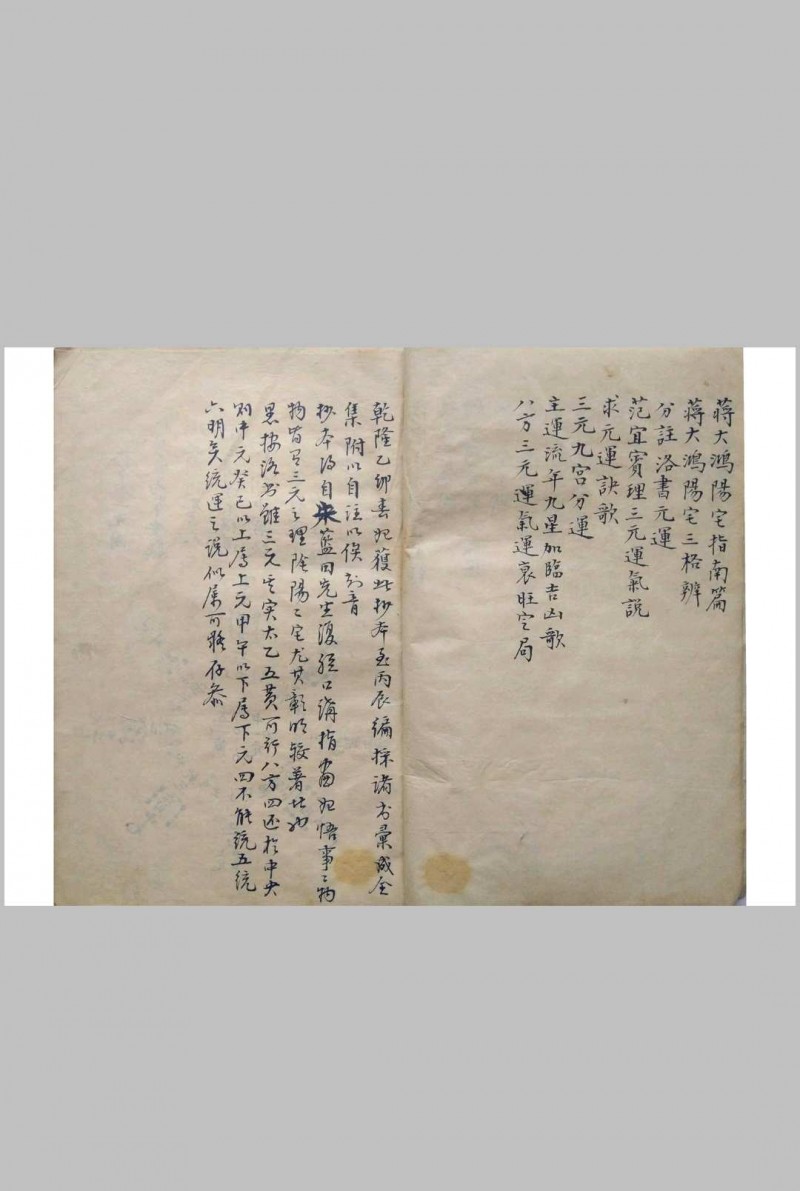 蔣大鴻陽宅指南篇
蔣大鴻陽宅三格辨
分註洛書元運
范宜賓理三元運氣說
求元運訣歌
三元九宮分運
主運流年九星加臨吉凶歌
八方三元運氣運衰旺定局
乾隆乙卯春始獲此抄本至丙辰編採諸书彙成全
集附以自注以俟知音
抄本得自宋藍田先生復經口講指畫始悟事〻物
物皆有三元之理陰陽二宅尤其彰明較著者也
愚按洛书雖三元其实太乙五黄可行八方四还於中央
則中元癸巳以上属上元甲午以下属下元四不能統五統
六明矣統運之說似属可疑存参